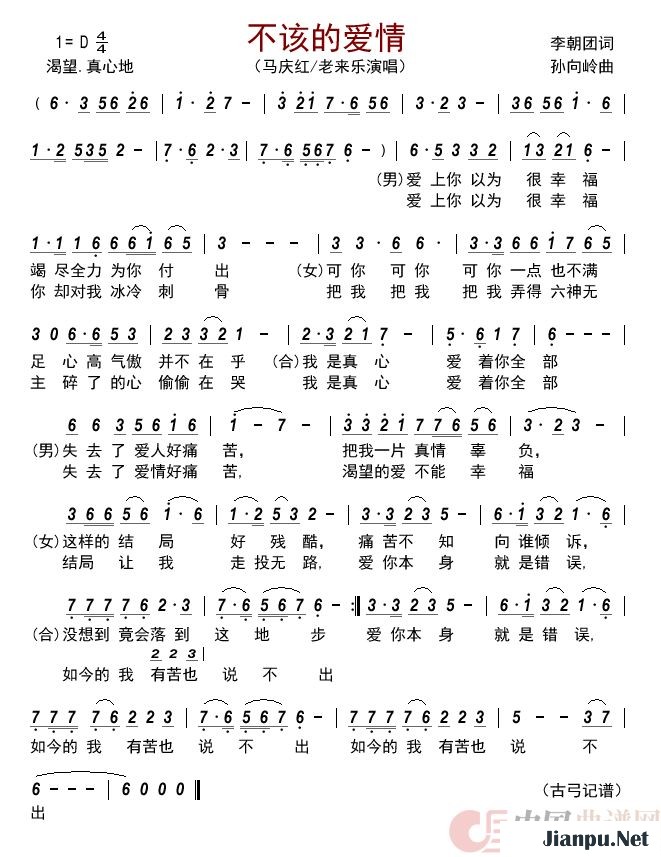 不该的爱情
1= D 4/4
李朝团词
渴望.真心地
（马庆红/老来乐演唱）
孙向岭曲
( 6· 3 56 26 | 1· 27 - | 7· 65 35 | 3 - - - | 36 56 1· 6 |
1·2 5352 - | 7·6 2·3 | 7·6 567 6 - ) | 6·5 3 3 2 | 13 21 6 - |
(男)爱 上你 以为 很 幸 福
爱 上你 以为 很 幸 福
1·1 1 6 661 65 | 3 - - - | 3·3 6 6 - | 3·3 661 7 65 |
竭 尽全力 为你 付 出 (女)可你 可你 可你 一点 也不满
你 却对我 冰冷 刺 骨 把我 把我 把我 弄得 六神无
3 0 6·6 53 | 23 3 32 2 - | 2·3 321 - | 5· 617 | 6 - - - |
足 心高 气傲 并不 在 乎 (合)我 是 真 心 爱 着你 全 部
主 碎了 的心 偷偷 在 哭 我 是 真 心 爱 着你 全 部
6 6 3 5616 | 1 - 7 - | 33 21 7765 | 5 - - - |
(男)失 去 了 爱人好痛 苦， 把我一片 真情 辜 负，
失 去 了 爱情好痛 苦, 渴望的爱 不能 幸 福
3665 1·6 | 1·2 53 - | 3·3 3 23 | 6·1 3 22 |
(女)这样的 结 局 好 残 酷， 痛 苦不 知 向 谁倾 诉，
结局 让 我 走 投无 路, 爱 你本 身 就 是 错误,
777 76 2·3 | 7·6 567 6 - :|| 3·3 323 5 - | 6·1 322 |
(合)没想到 竟会落 到 这 地 步 爱 你本 身 就 是 错 误,
2 2 3
如今的 我 有苦也 说 不 出
777 76 223 | 7·6 567 6 - | 777 76 223 | 5 - - 37 |
如今的 我 有苦也 说 不 出 如今的 我 有苦也 说 不
6 - - - | 6 0 0 0 ||
（古弓记谱）
出
中国曲谱网
Jianpu.Net